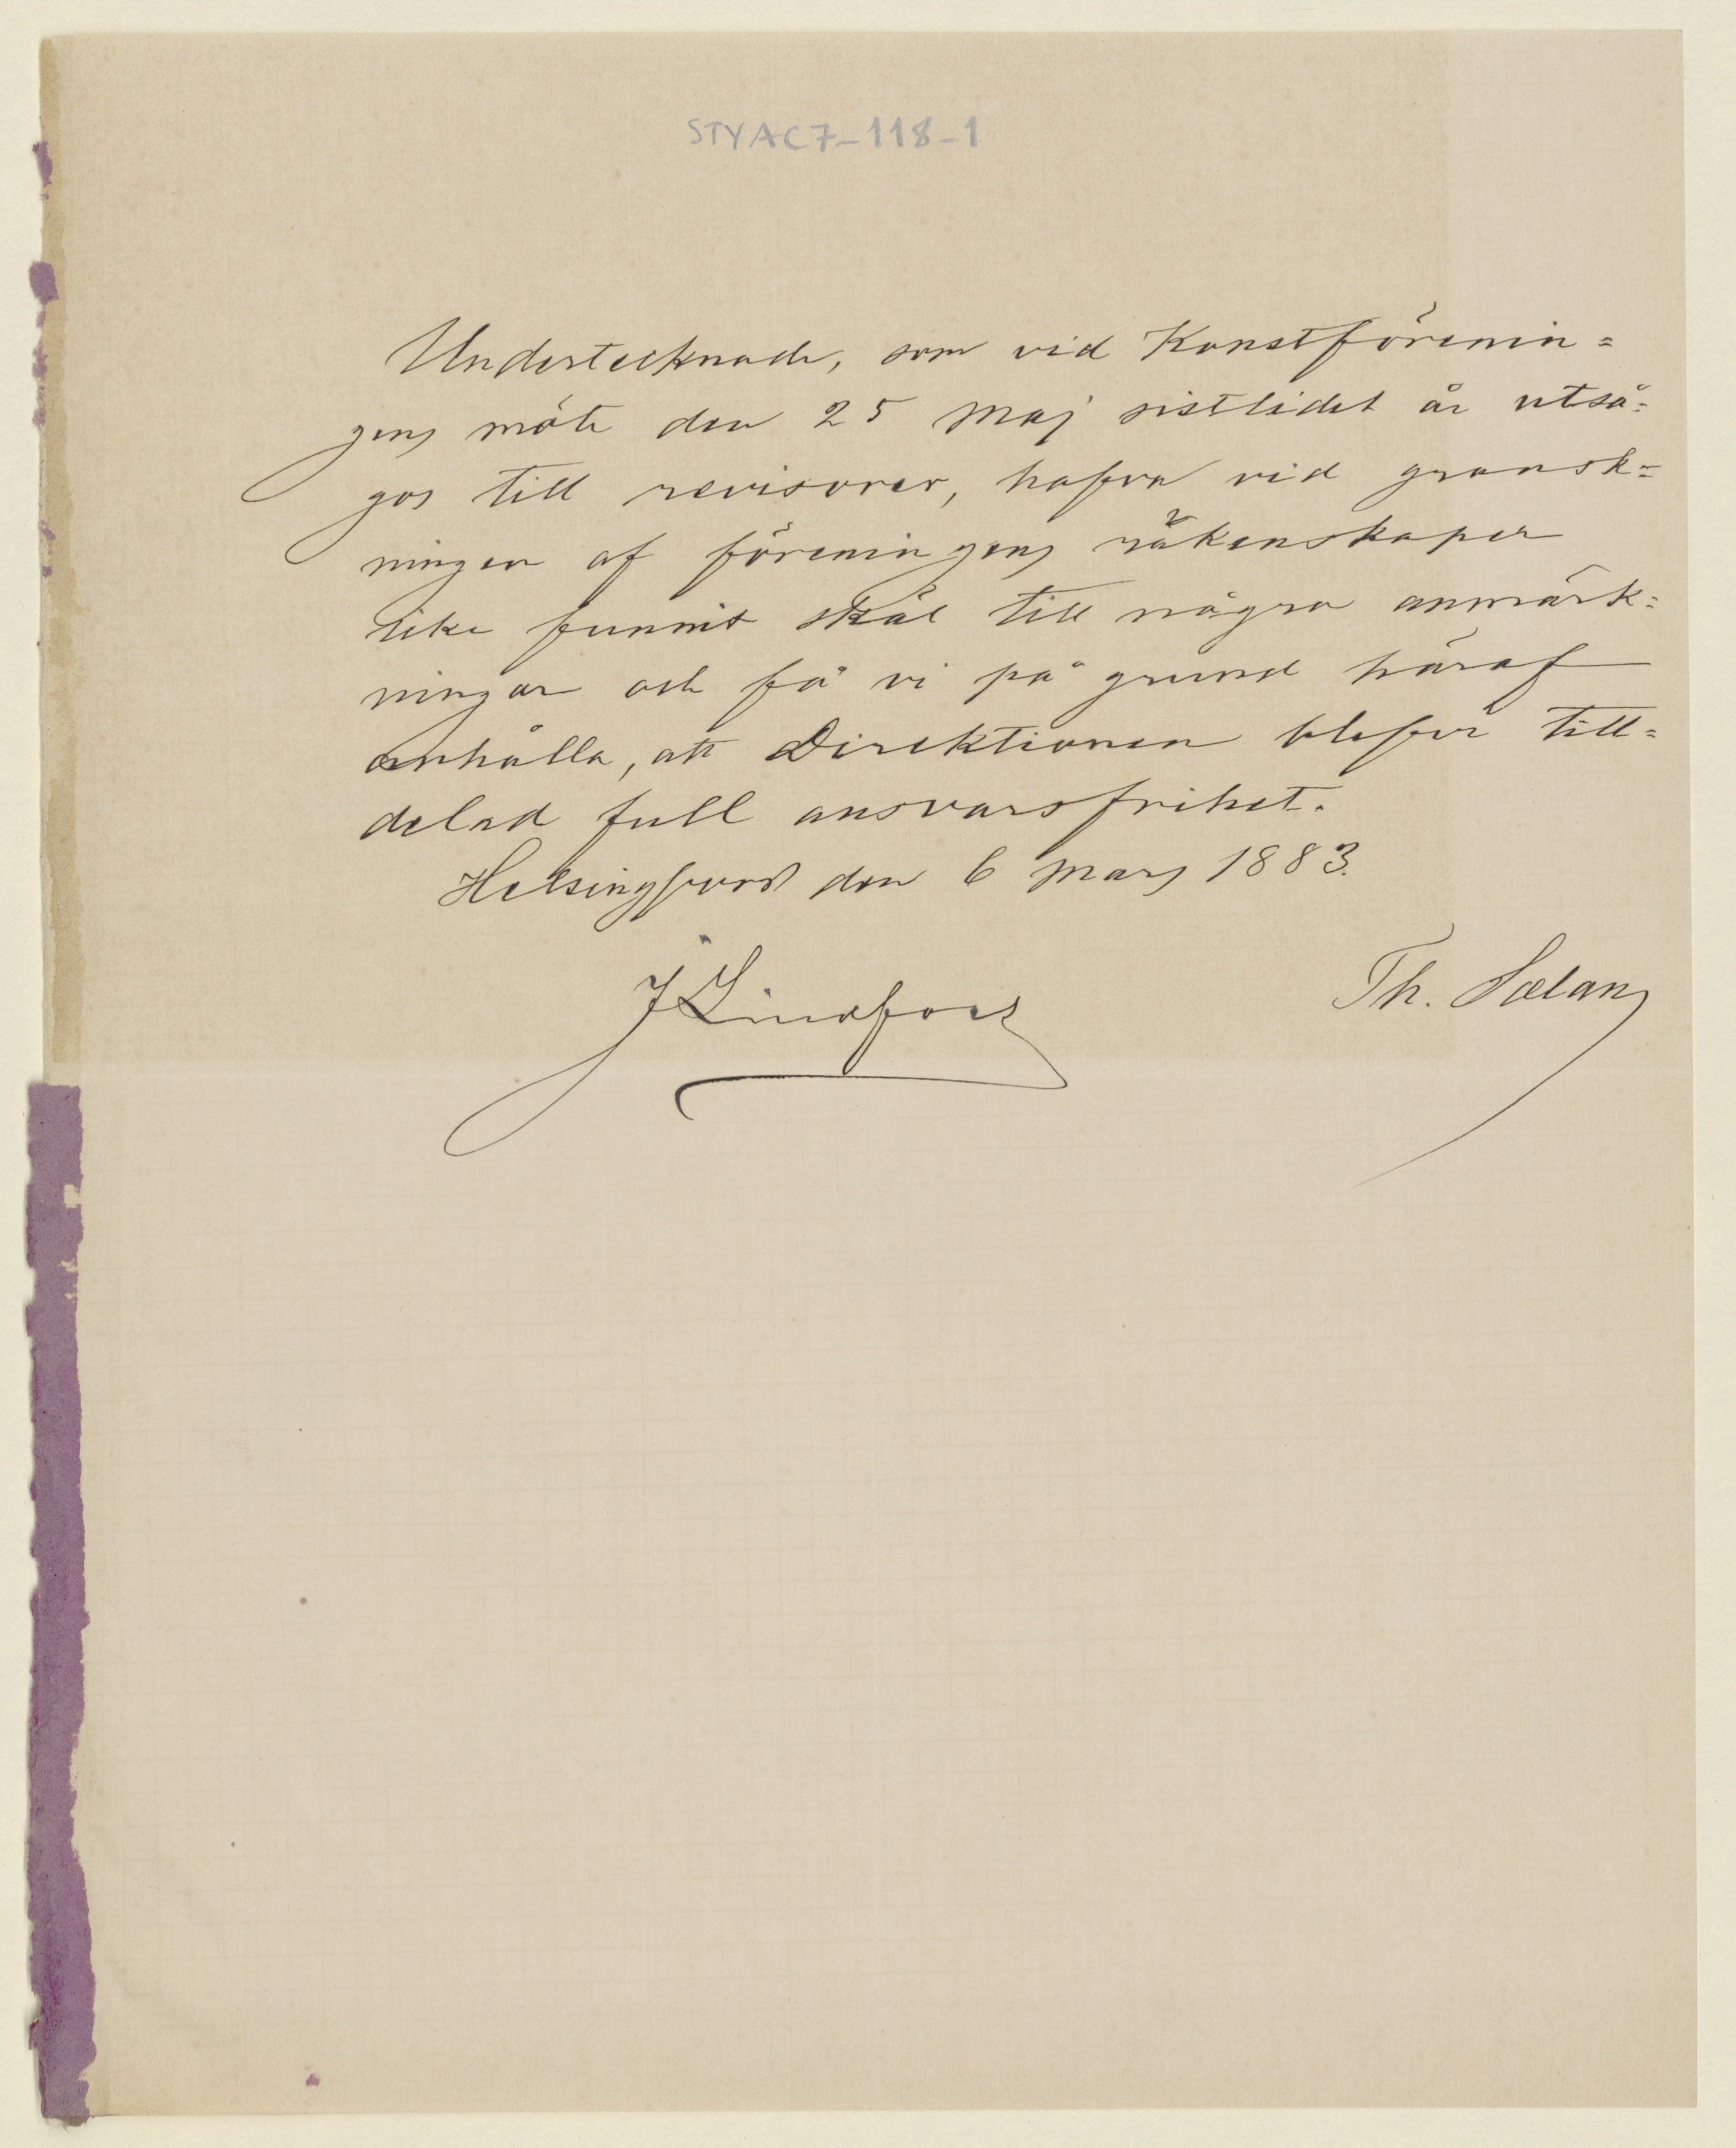 STYAC7-118-1
Undertecknade, som vid Konstförenin=
gens möte den 25 Maj sistlidet år utså=
gos till revisorer, hafva vid gransk=
ningen af föreningens räkenskaper
icke funnit skäl till några anmärk=
ningar och få vi på grund häraf
anhålla, att Direktionen blefve till=
delad full ansvarsfrihet.
Helsingfors den 6 Mars 1883.
J Lindfors Th. Sælan